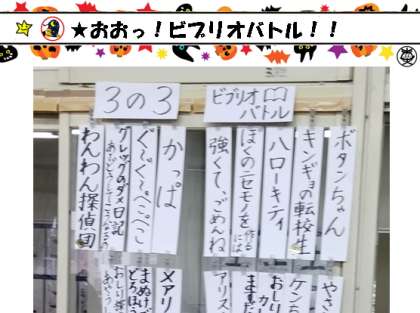 ★おおっ！ビブリオバトル！！
3の3
ビブリオバトル
ボタンちゃん
キンギョの転校生
ハローキティ
ぼくのニセモノを作るには
強くて、ごめんね
かっぱ
ぐぐぐーぺこぺこ
グレッグのダメ日記
わんわん探偵団
やさ
ケンち
おしり
アリス
メアリ
まぬけ
どろぼう
おしり